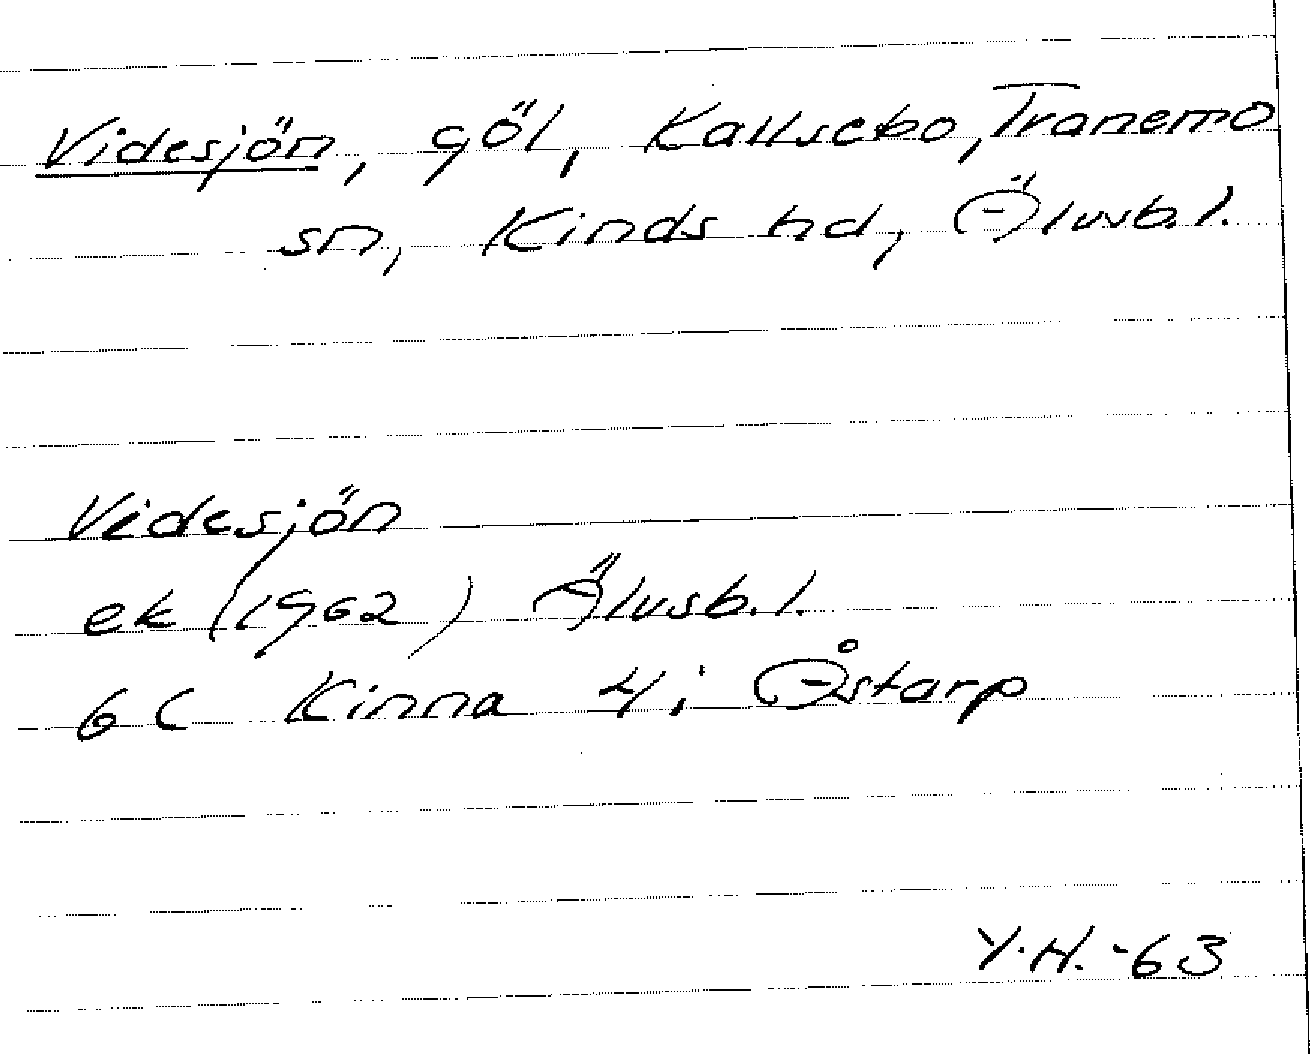 Videsjön, göl, Kallsebo, Tranemo
sn, Kinds hd, Älvsb.l.
Videsjön
ek (1962) Älvsb.l.
6C Kinna 4i Åstarp
Y.H.-63